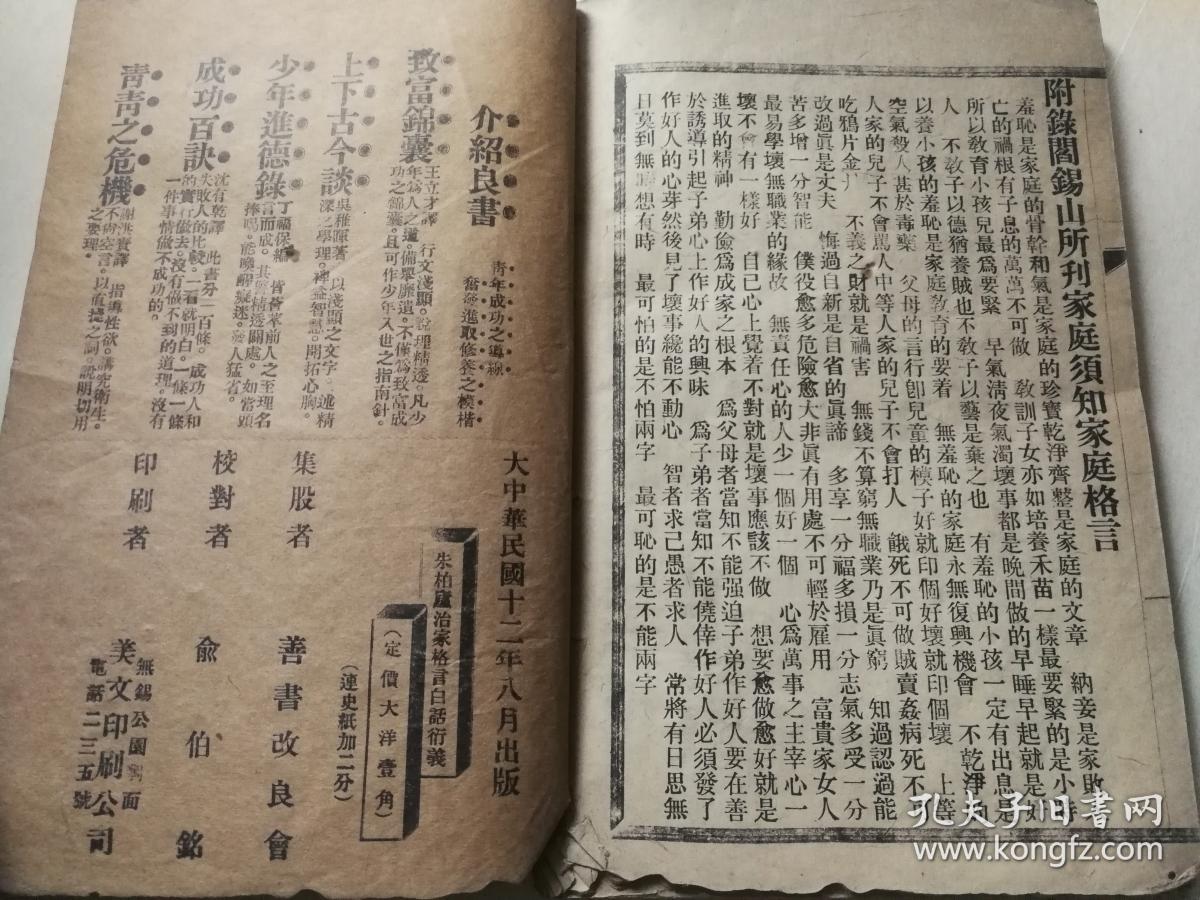 附錄閻錫山所刊家庭須知家庭格言
羞恥是家庭的骨幹和氣是家庭的珍寶乾淨齊整是家庭的文章　納妾是家敗
亡的禍根有子息的萬萬不可做　教訓子女亦如培養禾苗一樣最要緊的是小
所以教育小孩兒最爲要緊　早氣清夜氣濁壞事都是晚間做的早睡早起就是好
人　不教子以德猶養賊也不教子以藝是棄之也　有羞恥的小孩一定有出息是
以養小孩的羞恥是家庭教育的要着　無羞恥的家庭永無復興機會　不乾淨的
空氣殺人甚於毒藥　父母的言行卽兒童的模子好就印個好壞就印個壞　上等
人家的兒子不會罵人中等人家的兒子不會打人　餓死不可做賊賣姦病死不
吃鴉片金丹　不義之財就是禍害　無錢不算窮無職業乃是眞窮　知過認過能
改過眞是丈夫　悔過自新是自省的眞諦　多享一分福多損一分志氣多受一分
苦多增一分智能　僕役愈多危險愈大非眞有用處不可輕於雇用　富貴家女人
最易學壞無職業的緣故　無責任心的人少一個好一個　心爲萬事之主宰心一
壞不會有一樣好　自己心上覺着不對就是壞事應該不做　想要愈做愈好就是
進取的精神　勤儉爲成家之根本　爲父母者當知不能强迫子弟作好人要在善
於誘導引起子弟心上作好人的興味　爲子弟者當知不能僥倖作好人必須發了
作好人的心芽然後見了壞事纔能不動心　智者求己愚者求人　常將有日思無
日莫到無時想有時　最可怕的是不怕兩字　最可恥的是不能兩字
介紹良書
青年成功之導線
奮發進取修養之模楷
致富錦囊
王立才譯　行文淺顯。說理精透。凡少
年爲人之道。備舉靡遺。不僅爲致富成
功之錦囊。且可作少年入世之指南針。
上下古今談
吳稚暉著　以淺顯之文字。述精
深之學理。裨益智慧。開拓心胸。
少年進德錄
丁福保編　皆薈萃前人之至理名
言而成。其警精透闢處。如當頭
棒喝。能喚醒癡迷。發人猛省。
成功百訣
沈有乾譯　此書分一百條。成功人和
失敗人的比較。一看就明白。一條一條
的實行做去。沒有做不到的道理。沒有
一件事情做不成功的。
青靑之危機
謝洪賚譯　指導性欲。講究衛生。
不尚空言。以直捷之詞。說明切用
之要理。
大中華民國十二年八月出版
朱柏廬治家格言白話衍義
（定價大洋壹角）
（連史紙加二分）
集股者　善書改良會
校對者　俞伯銘
印刷者　無錫公園對面
美文印刷公司
電話二三五號
孔夫子旧书网
www.kongfz.com